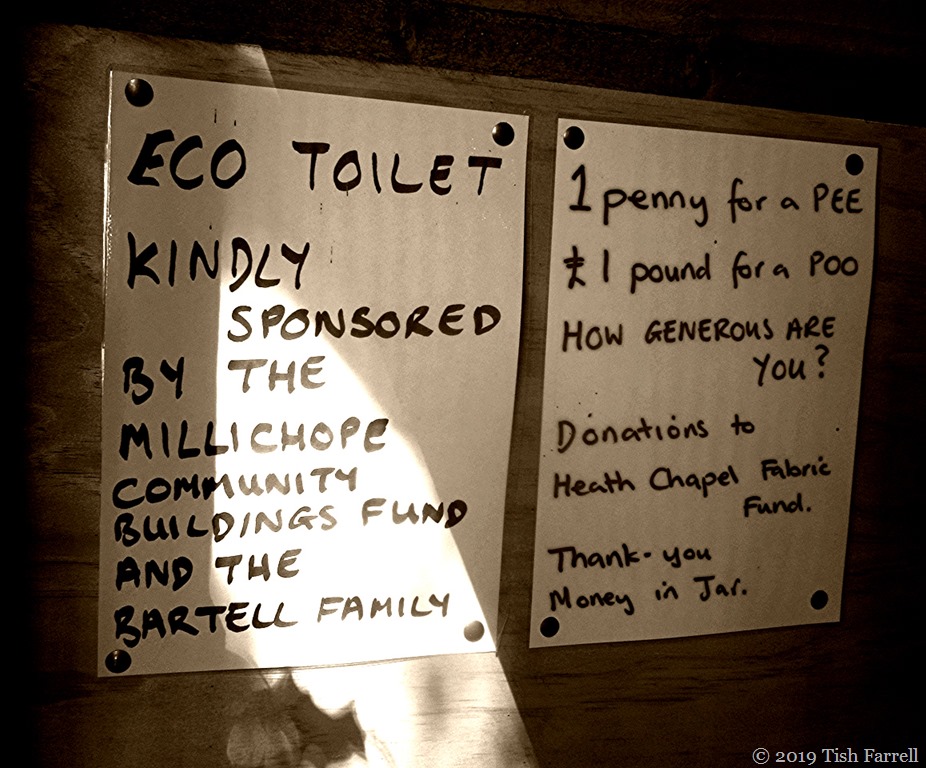 ECO TOILET
KINDLY
SPONSORED
BY THE
MILLICHOPE
COMMUNITY
BUILDINGS FUND
AND THE
BARTELL FAMILY
1 penny for a PEE
£1 pound for a POO
HOW GENEROUS ARE
YOU?
Donations to
Heath Chapel Fabric
Fund.
Thank-you
Money in Jar.
© 2019 Tish Farrell